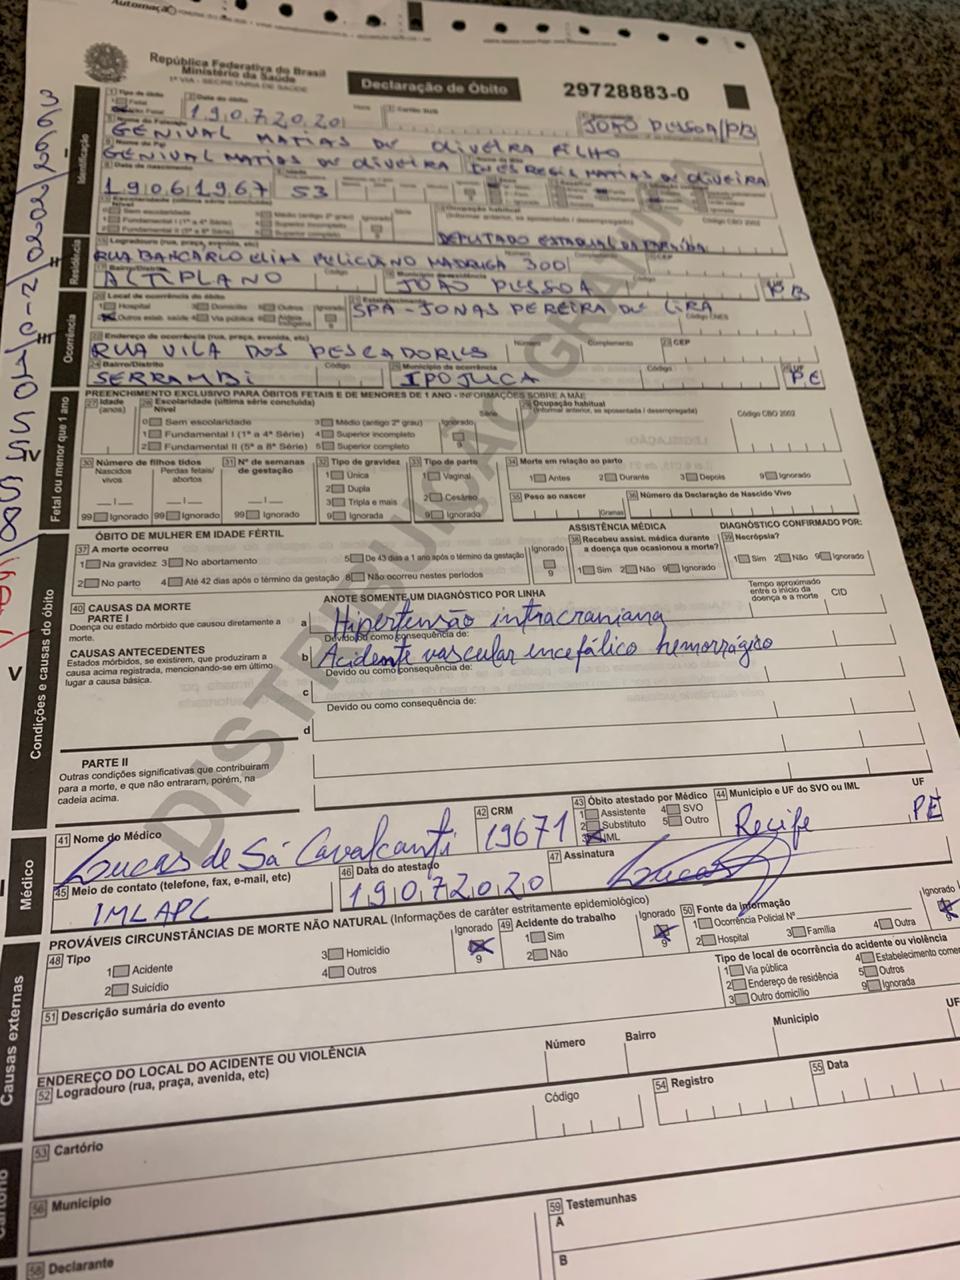 Automaçã
República Federativa do Brasil
Ministério da Saúde
1ª VIA - SECRETARIA DE SAÚDE
Declaração de Óbito
29728883-0
Identificação
1 Tipo do óbito
2 Data do óbito
Hora
3 Cartão SUS
19072020
JOÃO PESSOA/PB
GENIVAL MATIAS DE OLIVEIRA FILHO
GENIVAL MATIAS DE OLIVEIRA
INES REGIS MATIAS DE OLIVEIRA
Data de nascimento
19061967 53
Escolaridade (última série concluída)
Nível
Sem escolaridade
Fundamental I (1ª a 4ª Série)
Fundamental II (5ª a 8ª Série)
Médio (antigo 2º grau)
Superior incompleto
Superior completo
Ignorado
Série
Ocupação habitual
(informar anterior, se aposentado / desempregado)
Código CBO 2002
DEPUTADO ESTADUAL DA PARAÍBA
Residência
Logradouro (rua, praça, avenida, etc)
Número
Complemento
CEP
RUA BANCARIO ELIAS FELICIANO MADRUGA 300
Bairro/Distrito
Código
Município de residência
ALTIPLANO
JOÃO PESSOA
PB
Ocorrência
20 Local de ocorrência do óbito
1 Hospital
3 Domicílio
5 Outros
Ignorado
Outros estab. saúde 4 Via pública 6 Aldeia Indígena
Estabelecimento
Código CNES
SPA - JONAS PEREIRA DE LIRA
22 Endereço de ocorrência (rua, praça, avenida, etc)
Número
Complemento
23 CEP
RUA VILA DOS PESCADORES
24 Bairro/Distrito
Código
25 Município de ocorrência
Código
UF
SERRAMBI
IPOJUCA
PE
Fetal ou menor que 1 ano
PREENCHIMENTO EXCLUSIVO PARA ÓBITOS FETAIS E DE MENORES DE 1 ANO - INFORMAÇÕES SOBRE A MÃE
27 Idade (anos)
28 Escolaridade (última série concluída)
Nível
Série
0 Sem escolaridade
1 Fundamental I (1ª a 4ª Série)
2 Fundamental II (5ª a 8ª Série)
3 Médio (antigo 2º grau)
4 Superior incompleto
5 Superior completo
Ignorado
9
29 Ocupação habitual
(informar anterior, se aposentada / desempregada)
Código CBO 2002
30 Número de filhos tidos
Nascidos vivos
Perdas fetais/ abortos
99 Ignorado 99 Ignorado
31 Nº de semanas de gestação
99 Ignorado
32 Tipo de gravidez
1 Única
2 Dupla
3 Tripla e mais
9 Ignorada
33 Tipo de parto
1 Vaginal
2 Cesáreo
9 Ignorado
34 Morte em relação ao parto
1 Antes 2 Durante 3 Depois 9 Ignorado
35 Peso ao nascer
Gramas
36 Número da Declaração de Nascido Vivo
Condições e causas do óbito
ÓBITO DE MULHER EM IDADE FÉRTIL
37 A morte ocorreu
1 Na gravidez 3 No abortamento
5 De 43 dias a 1 ano após o término da gestação
Ignorado
9
2 No parto 4 Até 42 dias após o término da gestação 8 Não ocorreu nestes períodos
ASSISTÊNCIA MÉDICA
38 Recebeu assist. médica durante a doença que ocasionou a morte?
1 Sim 2 Não 9 Ignorado
DIAGNÓSTICO CONFIRMADO POR:
39 Necrópsia?
1 Sim 2 Não 9 Ignorado
40 CAUSAS DA MORTE
PARTE I
Doença ou estado mórbido que causou diretamente a morte.
CAUSAS ANTECEDENTES
Estados mórbidos, se existirem, que produziram a causa acima registrada, mencionando-se em último lugar a causa básica.
ANOTE SOMENTE UM DIAGNÓSTICO POR LINHA
Tempo aproximado entre o início da doença e a morte
CID
a Hipertensão intracraniana
Devido ou como consequência de:
b Acidente vascular encefálico hemorrágico
Devido ou como consequência de:
c
Devido ou como consequência de:
d
PARTE II
Outras condições significativas que contribuíram para a morte, e que não entraram, porém, na cadeia acima.
Médico
41 Nome do Médico
Lucas de Sá Cavalcanti
42 CRM
19671
43 Óbito atestado por Médico
1 Assistente 4 SVO
2 Substituto 5 Outro
3 IML
44 Município e UF do SVO ou IML
UF
Recife
PE
45 Meio de contato (telefone, fax, e-mail, etc)
IMLAPC
46 Data do atestado
19072020
47 Assinatura
Causas externas
PROVÁVEIS CIRCUNSTÂNCIAS DE MORTE NÃO NATURAL (Informações de caráter estritamente epidemiológico)
48 Tipo
1 Acidente
2 Suicídio
3 Homicídio
4 Outros
Ignorado
9
49 Acidente do trabalho
1 Sim
2 Não
Ignorado
9
50 Fonte da informação
1 Ocorrência Policial Nº
2 Hospital 3 Família 4 Outra
Ignorado
9
Tipo de local de ocorrência do acidente ou violência
1 Via pública
2 Endereço de residência
3 Outro domicílio
4 Estabelecimento come
5 Outros
9 Ignorada
51 Descrição sumária do evento
ENDEREÇO DO LOCAL DO ACIDENTE OU VIOLÊNCIA
52 Logradouro (rua, praça, avenida, etc)
Número
Bairro
Município
UF
Código
53 Cartório
54 Registro
55 Data
56 Município
58 Declarante
59 Testemunhas
A
B
DISTRIBUIÇÃO GRATUITA